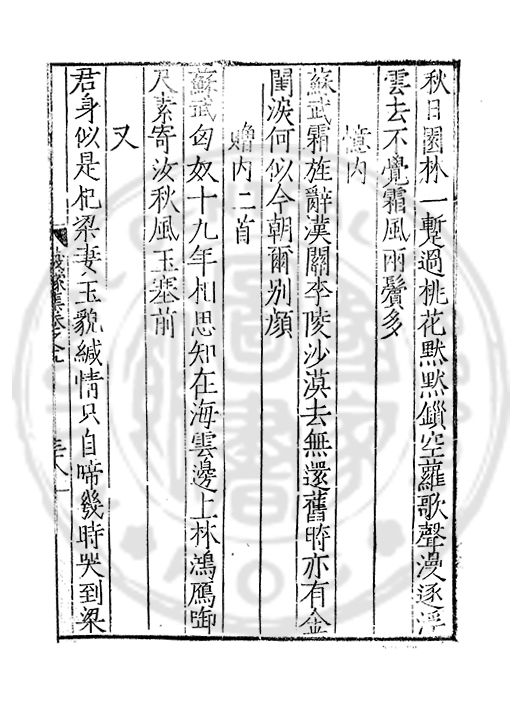 秋日園林一蹔過桃花默默鎖空蘿歌聲漫逐浮
雲去不覺霜風兩鬢多
憶内
蘇武霜旌辭漢關李陵沙漠去無還舊時亦有金
閨淚何似今朝爾别顔
贈内二首
蘇武匈奴十九年相思知在海雲邊上林鴻鴈啣
尺素寄汝秋風玉塞前
又
君身似是杞梁妻玉貌緘情只自啼幾時哭到梁